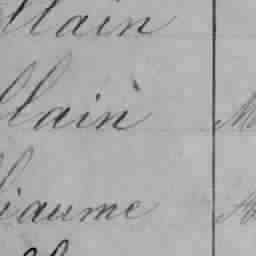 llain
llain M
iaume